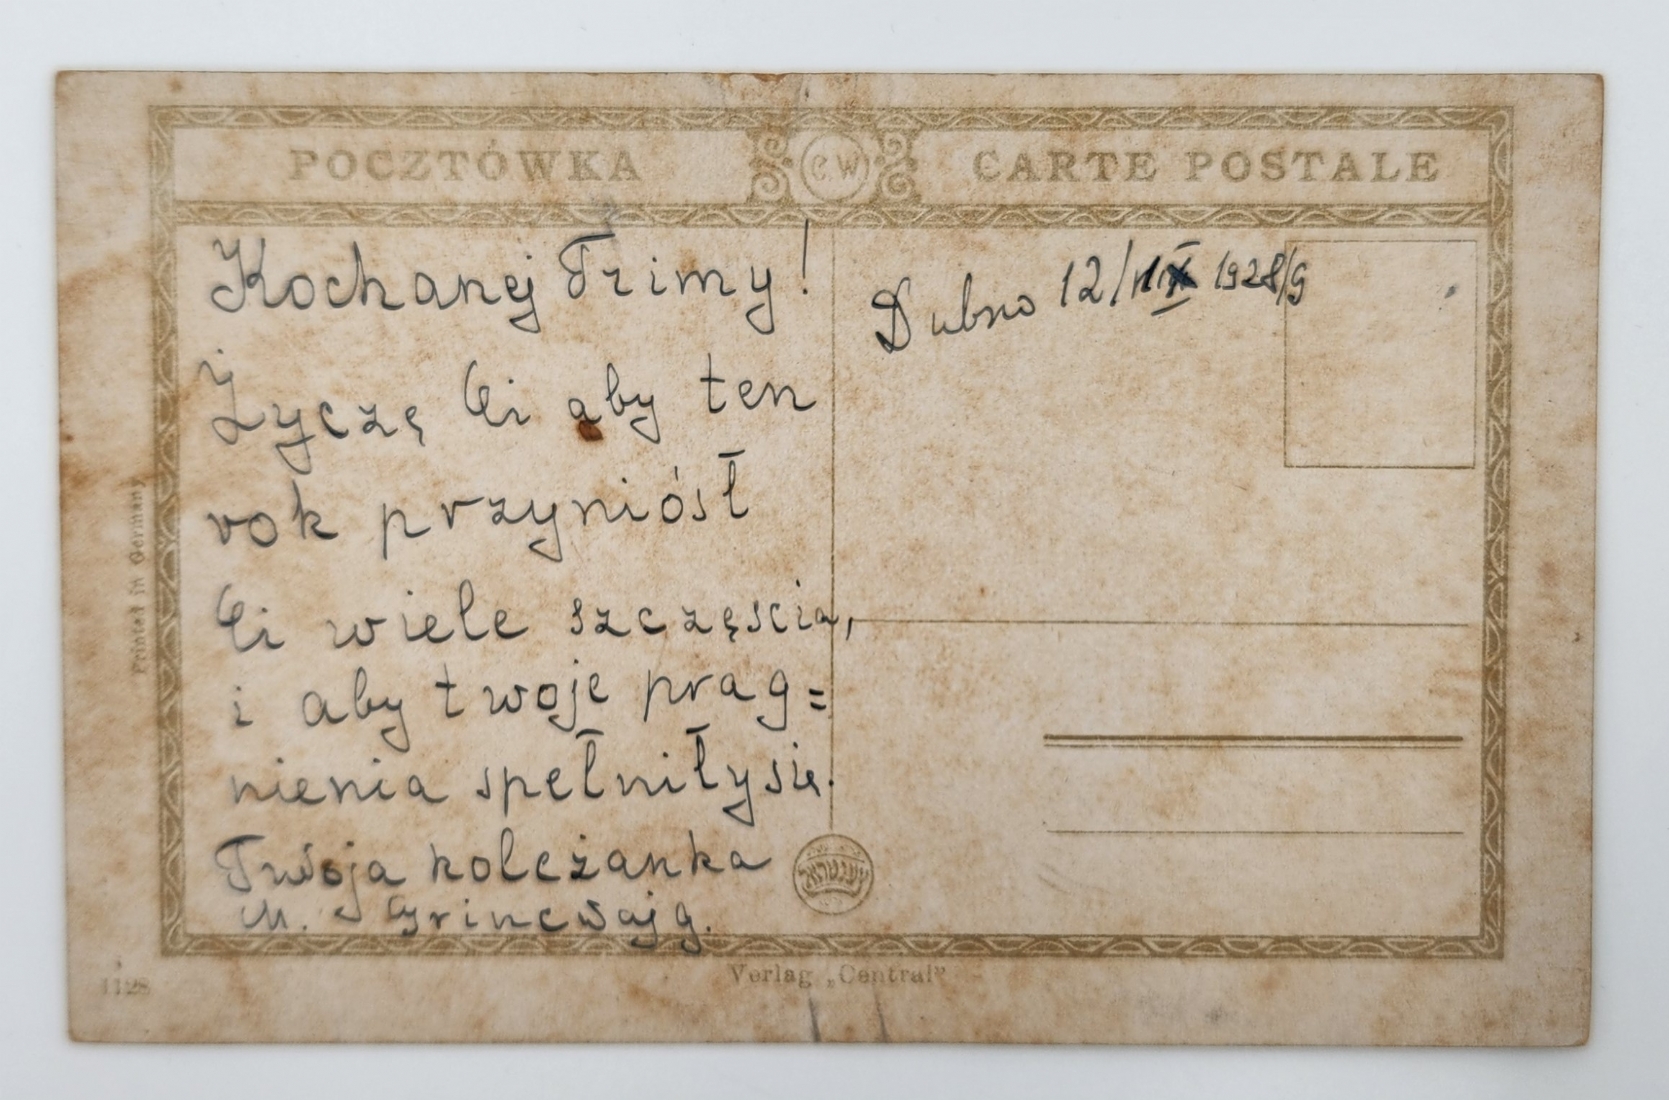 POCZTÓWKA
CW
CARTE POSTALE
Kochanej Frimy!
Życzę Ci aby ten
rok przyniósł
Ci wiele szczęścia,
i aby twoje prag=
nienia spełniły się.
Twoja koleżanka
M. Grincwajg.
Dubno 12/ IX 1928/9
צענטראל
Printed in Germany
1128
Verlag „Central"